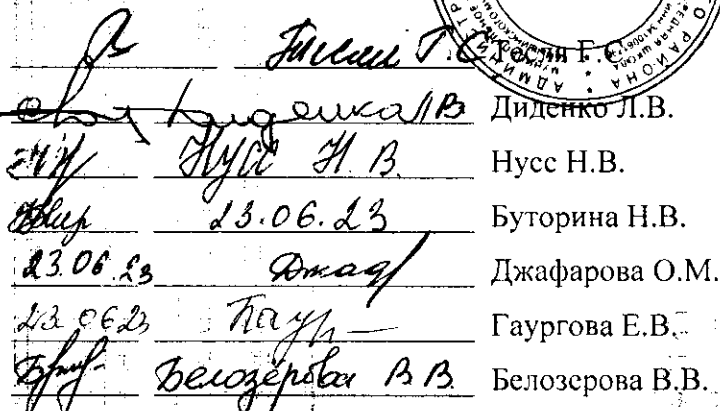 Гесин Г.С Гесин Г.С.
Диденко Л В Диденко Л.В.
Нусс Н. В. Нусс Н.В.
23.06.23 Буторина Н.В.
23.06.23 Джаф Джафарова О.М.
23.06.23 Гаур Гаургова Е.В.
Белозёрова В В. Белозерова В.В.